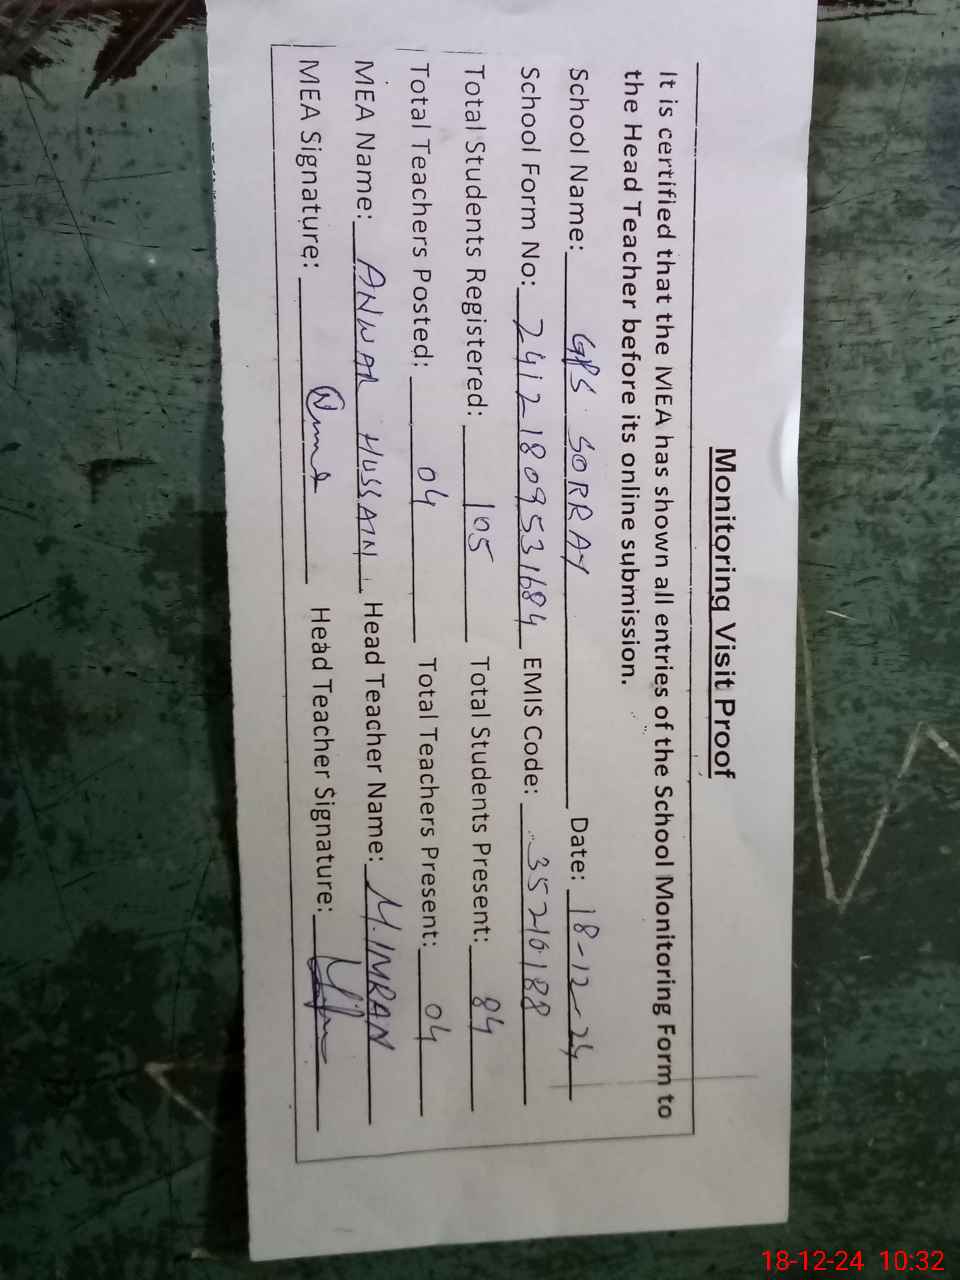 Monitoring Visit Proof
It is certified that the MEA has shown all entries of the School Monitoring Form to
the Head Teacher before its online submission.
School Name: GPS SORRAY Date: 18-12-24
School Form No: 241218095331684 EMIS Code: 35210188
Total Students Registered: 105 Total Students Present: 84
Total Teachers Posted: 04 Total Teachers Present: 04
MEA Name: ANWAR HUSSAIN Head Teacher Name: M.IMRAN
MEA Signature: Head Teacher Signature:
18-12-24 10:32